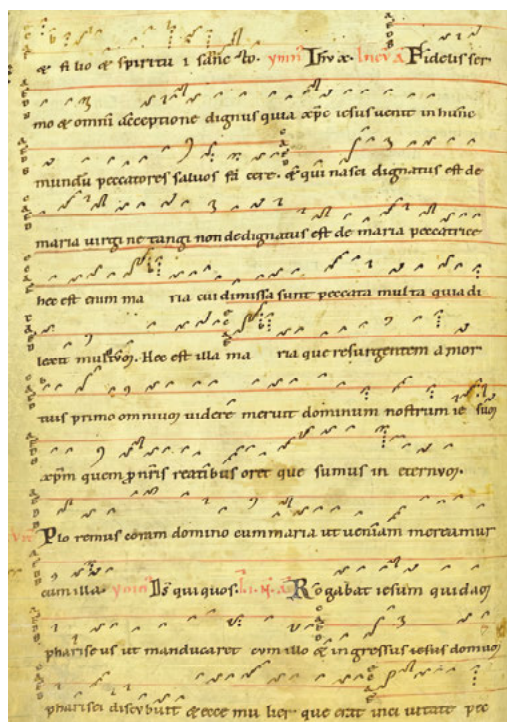 & fi lio & spiritu i sanc to. ymn̄ Ihū xp̄e. In euā A Fidelis ser
mo & omni acceptione dignus quia xp̄c iesus uenit in hunc
mundū peccatores saluos fa cere. & qui nasci dignatus est de
maria uirgi ne tangi non dedignatus est de maria peccatrice
hec est enim ma ria cui dimissa sunt peccata multa quia di
lexit multum. Hec est illa ma ria que resurgentem a mor
tuis primo omnium uidere meruit dominum nostrum ie sum
xp̄m quem pro n̄ris reatibus oret que sumus in eternum.
Plo remus coram domino cum maria ut ueniam mereamur
cum illa. ymn̄ Ds̄ qui quos. Rogabat iesum quidam
pharise us ut manducaret cum illo & in gressus iesus domum
pharisei discubuit & ecce mu lier que erat in ci uitate pec